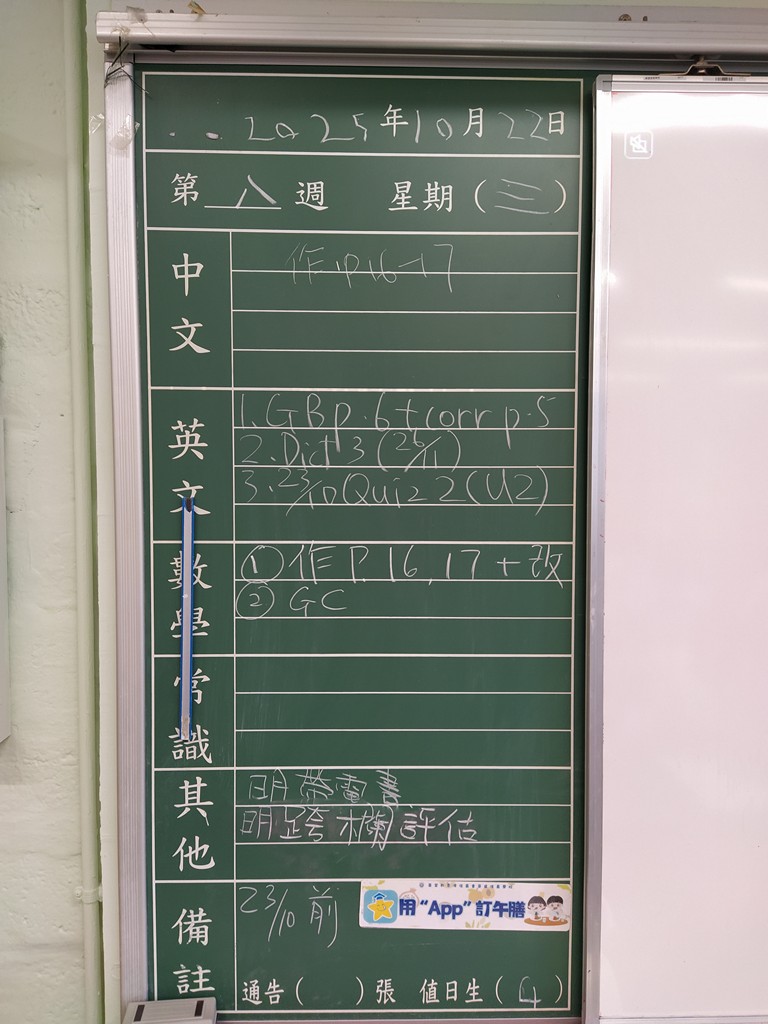 2025年10月22日
第八週 星期（三）
中文
作 p16-17
英文
1. GB p.6 + corr p.5
2. Dict 3 (26/11)
3. 23/10 Quiz 2 (U2)
數學
① 作 P.16, 17 + 改
② GC
常識
其他
明帶電書
明跨欄評估
備註
23/10 前
用“App”訂午膳
通告（ ）張 值日生（4）